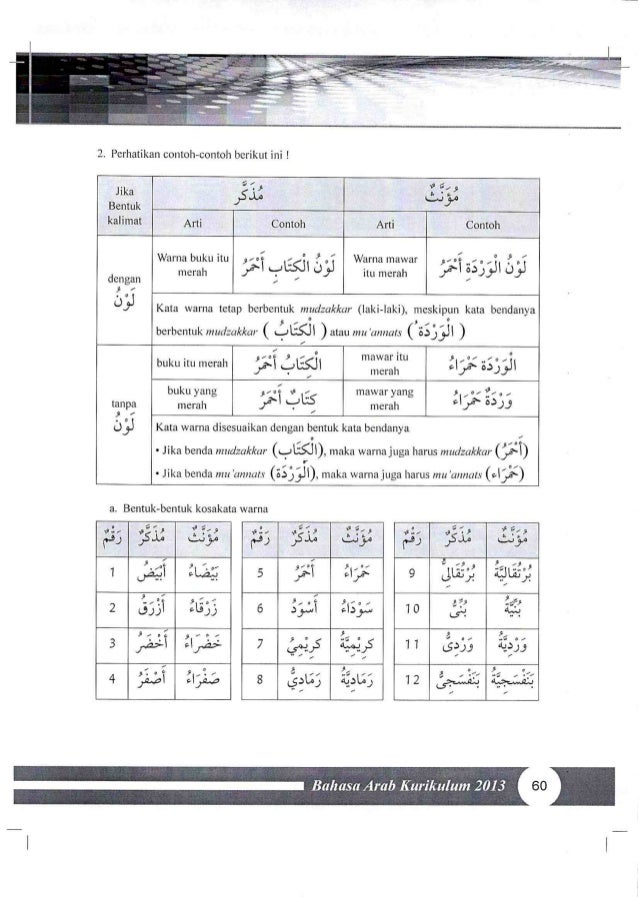 2. Perhatikan contoh-contoh berikut ini !
Jika Bentuk kalimat
مُذَكَّرٌ
مُؤَنَّثٌ
Arti
Contoh
Arti
Contoh
dengan لَوْنُ
Warna buku itu merah
لَوْنُ الْكِتَابِ أَحْمَرُ
Warna mawar itu merah
لَوْنُ الْوَرْدَةِ أَحْمَرُ
Kata warna tetap berbentuk mudzakkar (laki-laki), meskipun kata bendanya
berbentuk mudzakkar ( الْكِتَابُ ) atau mu'annats ( الْوَرْدَةُ )
tanpa لَوْنُ
buku itu merah
الْكِتَابُ أَحْمَرُ
mawar itu merah
الْوَرْدَةُ حَمْرَاءُ
buku yang merah
كِتَابٌ أَحْمَرُ
mawar yang merah
وَرْدَةٌ حَمْرَاءُ
Kata warna disesuaikan dengan bentuk kata bendanya
• Jika benda mudzakkar (الْكِتَابُ), maka warna juga harus mudzakkar (أَحْمَرُ)
• Jika benda mu'annats (الْوَرْدَةُ), maka warna juga harus mu'annats (حَمْرَاءُ)
a. Bentuk-bentuk kosakata warna
رَقْمٌ مُذَكَّرٌ مُؤَنَّثٌ
1 أَبْيَضُ بَيْضَاءُ
2 أَزْرَقُ زَرْقَاءُ
3 أَخْضَرُ خَضْرَاءُ
4 أَصْفَرُ صَفْرَاءُ
رَقْمٌ مُذَكَّرٌ مُؤَنَّثٌ
5 أَحْمَرُ حَمْرَاءُ
6 أَسْوَدُ سَوْدَاءُ
7 كَرِيْمِيٌّ كَرِيْمِيَّةٌ
8 رَمَادِيٌّ رَمَادِيَّةٌ
رَقْمٌ مُذَكَّرٌ مُؤَنَّثٌ
9 بُرْتُقَالِىٌّ بُرْتُقَالِيَّةٌ
10 بُنِّىٌّ بُنِّيَّةٌ
11 وَرْدِىٌّ وَرْدِيَّةٌ
12 بَنَفْسَجِىٌّ بَنَفْسَجِيَّةٌ
Bahasa Arab Kurikulum 2013
60